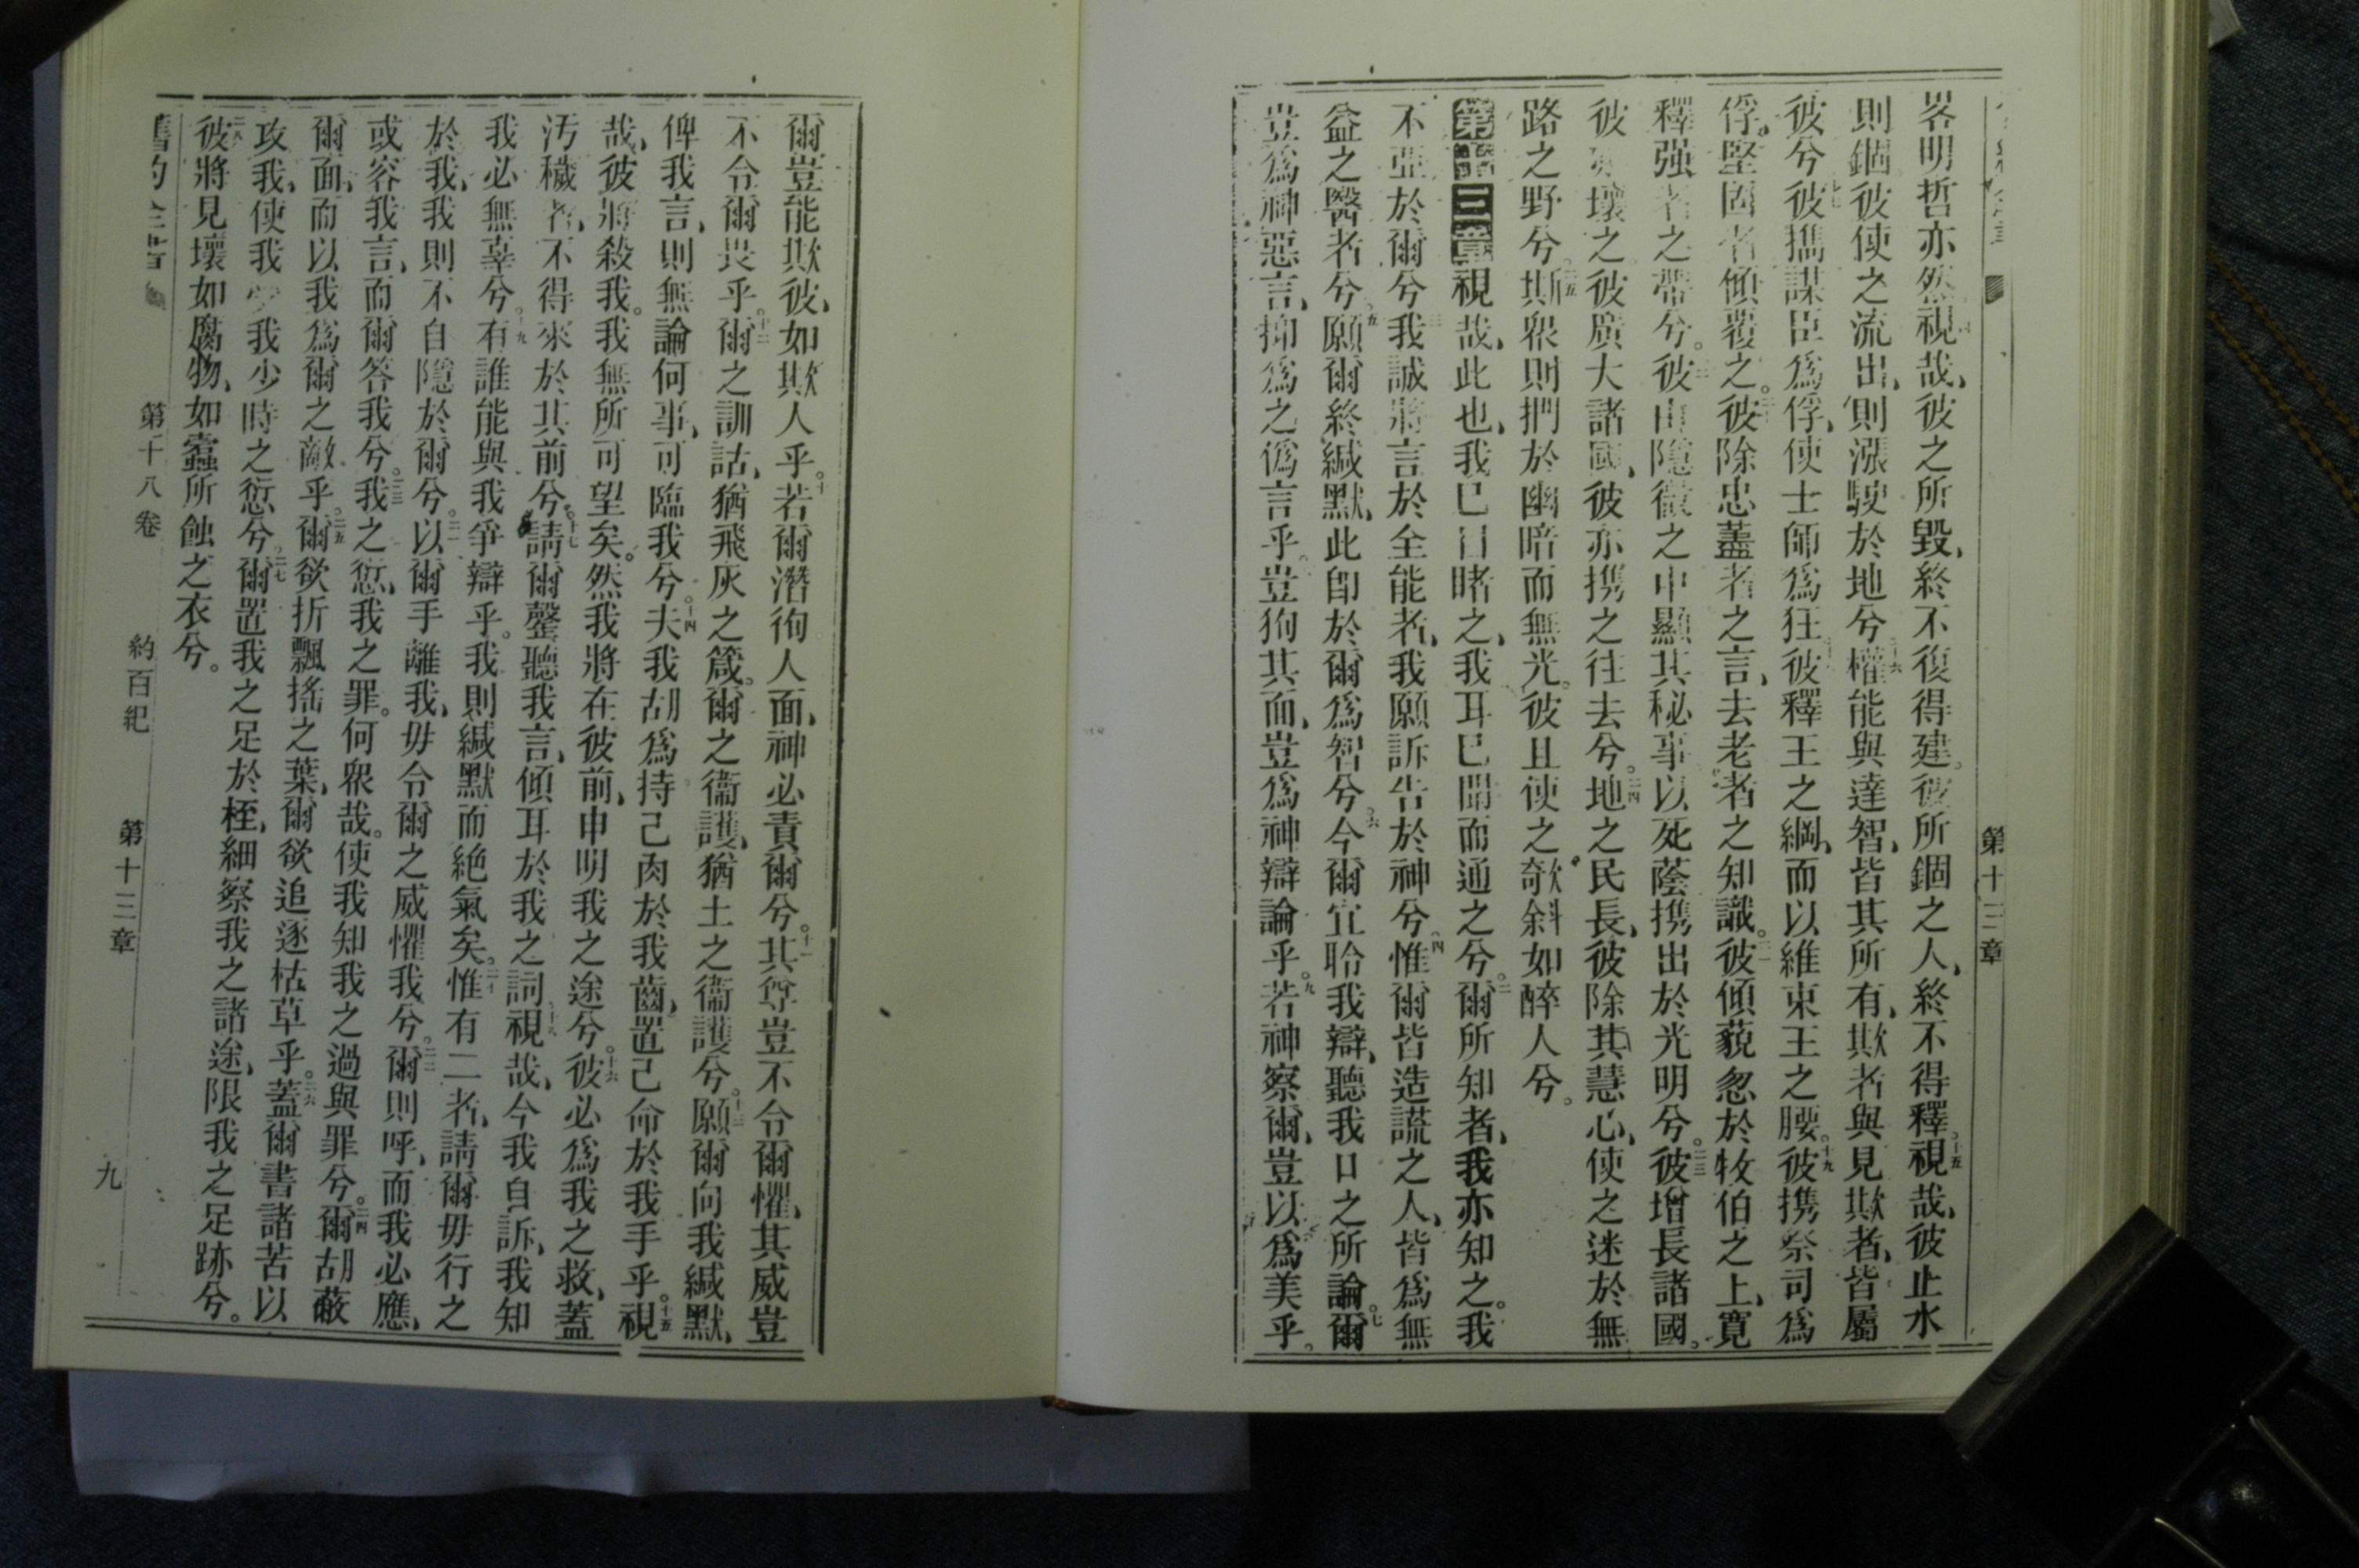 第十三章
畧明哲亦然視哉、彼之所毀、終不復得建。彼所錮之人、終不得釋。十五視哉、彼止水
則錮彼使之流出、則漲駛於地兮。十六權能與達智、皆其所有、欺者與見欺者、皆屬
彼兮。十七彼擕謀臣爲俘、使士師爲狂。彼釋王之綱、而以維束王之腰。十九彼擕祭司爲
俘、堅固者傾覆之。二十彼除忠藎者之言、去老者之知識。二一彼傾藐忽於牧伯之上、寬
釋强者之帶兮。彼由隱微之中顯其秘事以死蔭擕出於光明兮。二三彼增長諸國。
彼壞之。彼廣大諸國、彼亦擕之往去兮。二四地之民長、彼除其慧心、使之迷於無
路之野兮。二五斯衆則捫於幽暗而無光。彼且使之欹斜如醉人兮。
第十三章視哉、此也、我已目睹之、我耳已聞而通之兮。二爾所知者、我亦知之。我
不亞於爾兮。三我誠將言於全能者、我願訴告於神兮。四惟爾皆造謊之人、皆爲無
益之醫者兮。五願爾終緘默、此卽於爾爲智兮。六今爾宜聆我辯、聽我口之所論。七爾
豈爲神惡言、抑爲之僞言乎。豈狥其面、豈爲神辯論乎。九若神察爾、豈以爲美乎。
爾豈能欺彼、如欺人乎。十若爾潛徇人面、神必責爾兮。十一其尊豈不令爾懼、其威豈
不令爾畏乎。十二爾之訓詁、猶飛灰之箴。爾之衞護、猶土之衞護兮。十三願爾向我緘默、
俾我言、則無論何事、可臨我兮。十四夫我胡爲持己肉於我齒、置己命於我手乎。十五視
哉、彼將殺我。我無所可望矣。然我將在彼前、申明我之途兮。十六彼必爲我之救、蓋
汚穢者、不得來於其前兮。十七請爾罄聽我言、傾耳於我之詞。十八視哉、今我自訴、我知
我必無辜兮。十九有誰能與我爭辯乎。我則緘默而絶氣矣。二十惟有二者、請爾毋行之
於我、我則不自隱於爾兮。二一以爾手離我、毋令爾之威懼我兮。二二爾則呼、而我必應、
或容我言、而爾答我兮。二三我之愆、我之罪。何衆哉。使我知我之過與罪兮。二四爾胡蔽
爾面、而以我爲爾之敵乎。二五爾欲折飄搖之葉、爾欲追逐枯草乎。二六蓋爾書諸苦以
攻我、使我受我少時之愆兮。二七爾置我之足於桎、細察我之諸途、限我之足跡兮。
二八彼將見壞如腐物、如蠧所蝕之衣兮。
舊約全書 第十八卷 約百紀 第十三章 九